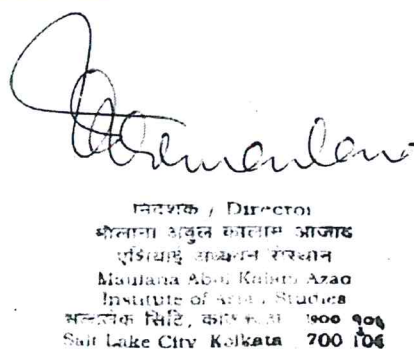 निदेशक / Director
मौलाना अबुल कालाम आजाद
एशियाई अध्ययन संस्थान
Maulana Abul Kalam Azad
Institute of Asian Studies
सल्टलेक सिटि, कोलकाता 700 106
Salt Lake City Kolkata 700 106